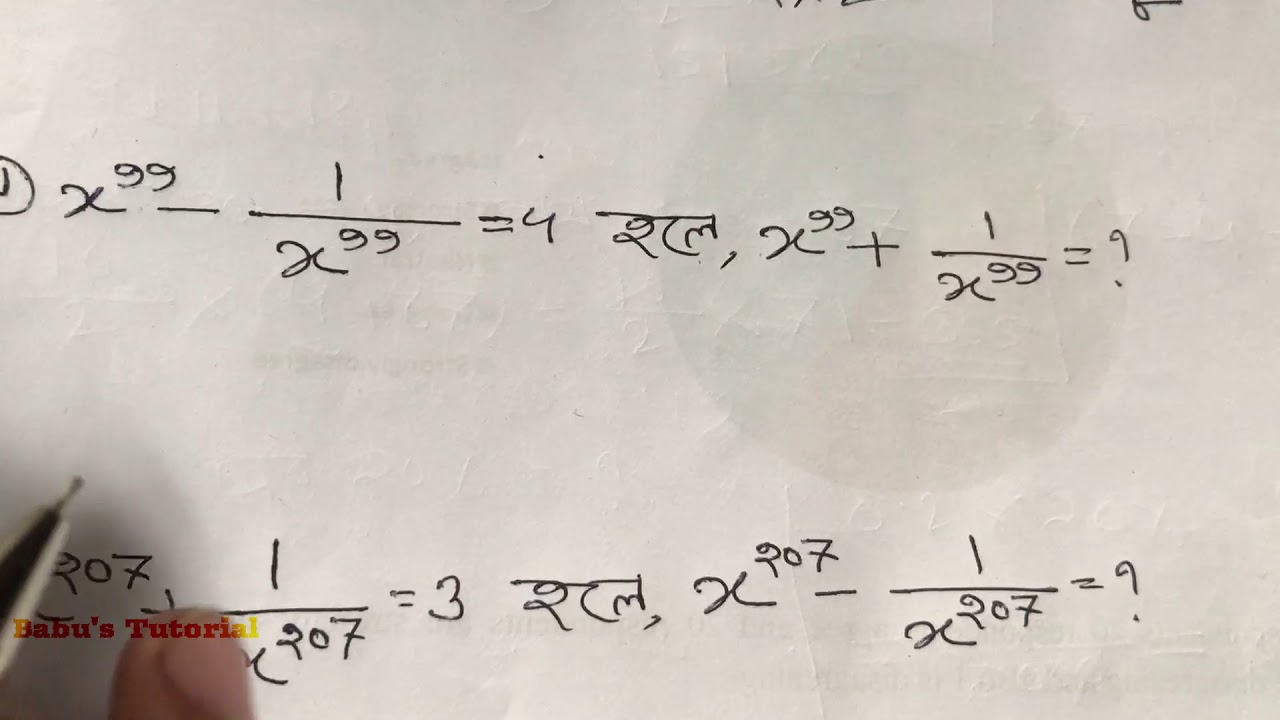 ① x⁹⁹ - 1/x⁹⁹ = 4 হলে, x⁹⁹ + 1/x⁹⁹ = ?
x²⁰⁷ + 1/x²⁰⁷ = 3 হলে, x²⁰⁷ - 1/x²⁰⁷ = ?
Babu's Tutorial